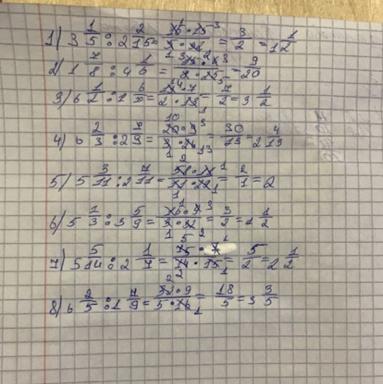 1) 3 1/5 : 2 2/15 = 16·15/5·32 = 3/2 = 1 1/2
2) 1 7/8 : 4 1/6 = 15·6/8·25 = 9/20
3) 6 1/2 : 1 6/7 = 13·7/2·13 = 7/2 = 3 1/2
4) 6 2/3 : 2 8/9 = 20·9/3·26 = 30/13 = 2 4/13
5) 5 3/11 : 2 7/11 = 58·11/11·29 = 2/1 = 2
6) 5 1/3 : 3 5/9 = 16·9/3·32 = 3/2 = 1 1/2
7) 5 5/14 : 2 1/7 = 75·7/14·15 = 5/2 = 2 1/2
8) 6 2/5 : 1 7/9 = 32·9/5·16 = 18/5 = 3 3/5